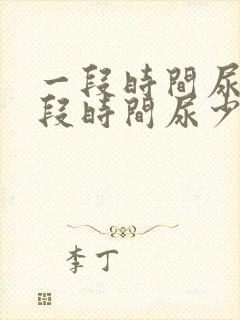 一段時間尿
段時間尿少
李丁